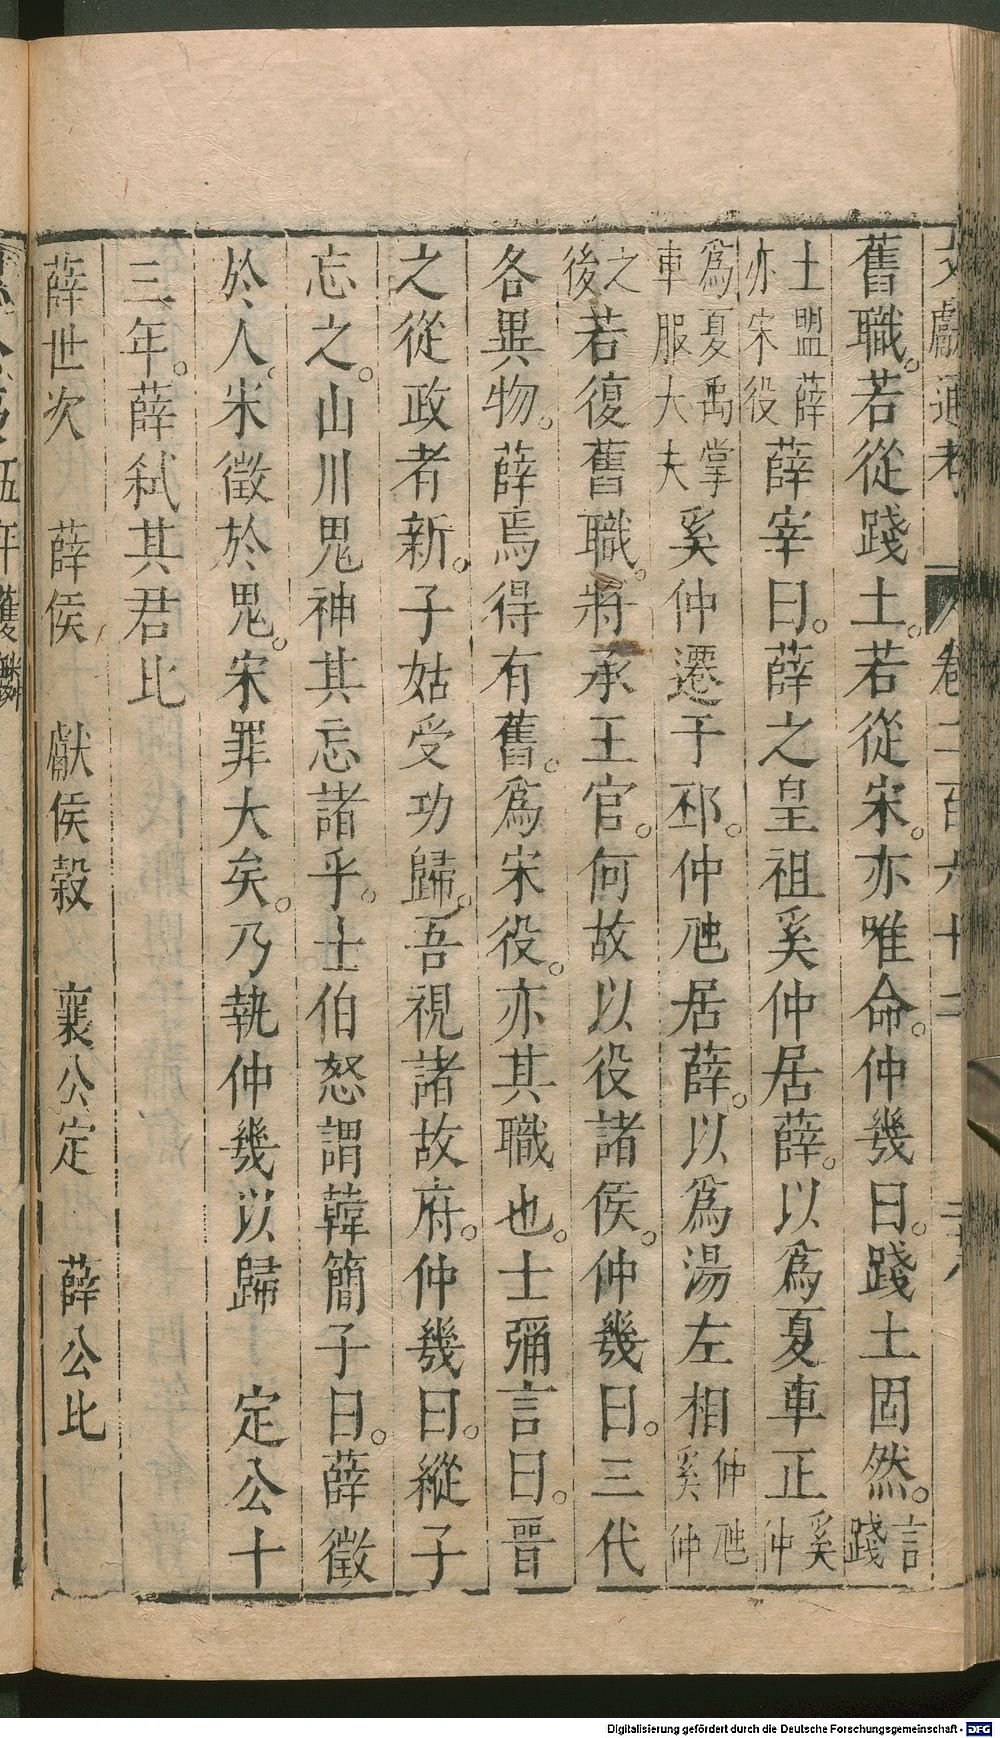 文獻通考　卷二百六十二　二十八
舊職。若從踐土。若從宋。亦唯命。仲幾曰。踐土固然。言踐
土盟薛亦宋役薛宰曰。薛之皇祖奚仲居薛。以爲夏車正奚仲
爲夏禹掌車服大夫奚仲遷于邳。仲虺居薛。以爲湯左相仲虺奚仲
之後若復舊職。將承王官。何故以役諸侯。仲幾曰。三代
各異物。薛焉得有舊。爲宋役。亦其職也。士彌言曰。晉
之從政者新。子姑受功歸。吾視諸故府。仲幾曰。縱子
忘之。山川鬼神其忘諸乎。士伯怒謂韓簡子曰。薛徵
於人。宋徵於鬼。宋罪大矣。乃執仲幾以歸　定公十
三年。薛弒其君比
薛世次　薛侯　獻侯穀　襄公定　薛公比